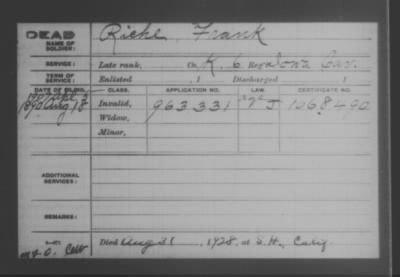 DEAD
NAME OF SOLDIER: Riehl, Frank
SERVICE: Late rank, Co. K. 6 Reg. Iowa Cav.
TERM OF SERVICE: Enlisted , 1 Discharged , 1
DATE OF FILING. CLASS. APPLICATION NO. LAW. CERTIFICATE NO.
1890 Aug 18 Invalid, 963331 J 1068490
Widow,
Minor,
ADDITIONAL SERVICES:
REMARKS:
Died Aug 31, 1928, at S.H., Calif